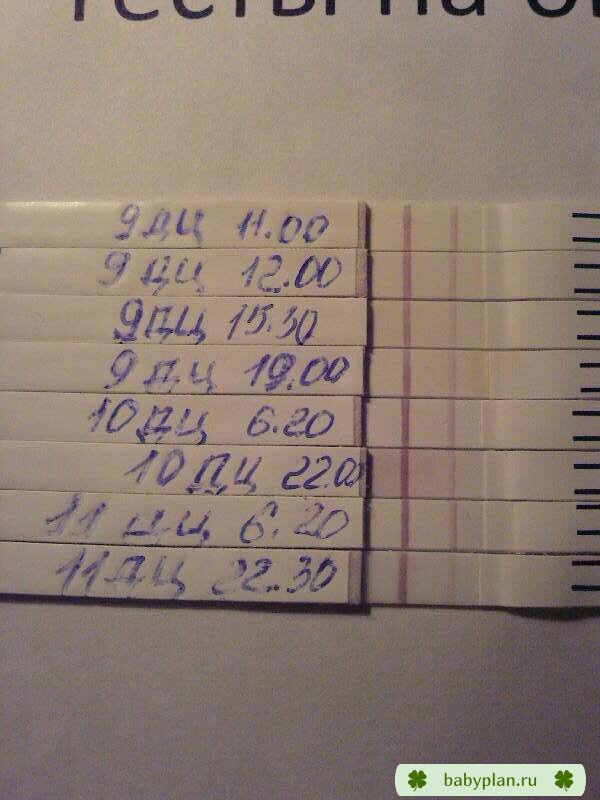 тесты на о
9 ДЦ 11.00
9 ДЦ 12.00
9 ДЦ 15.30
9 ДЦ 19.00
10 ДЦ 6.20
10 ДЦ 22.00
11 ДЦ 6.20
11 ДЦ 22.30
babyplan.ru